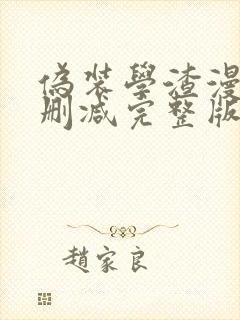 偽裝學渣漫
刪減完整版
趙家良